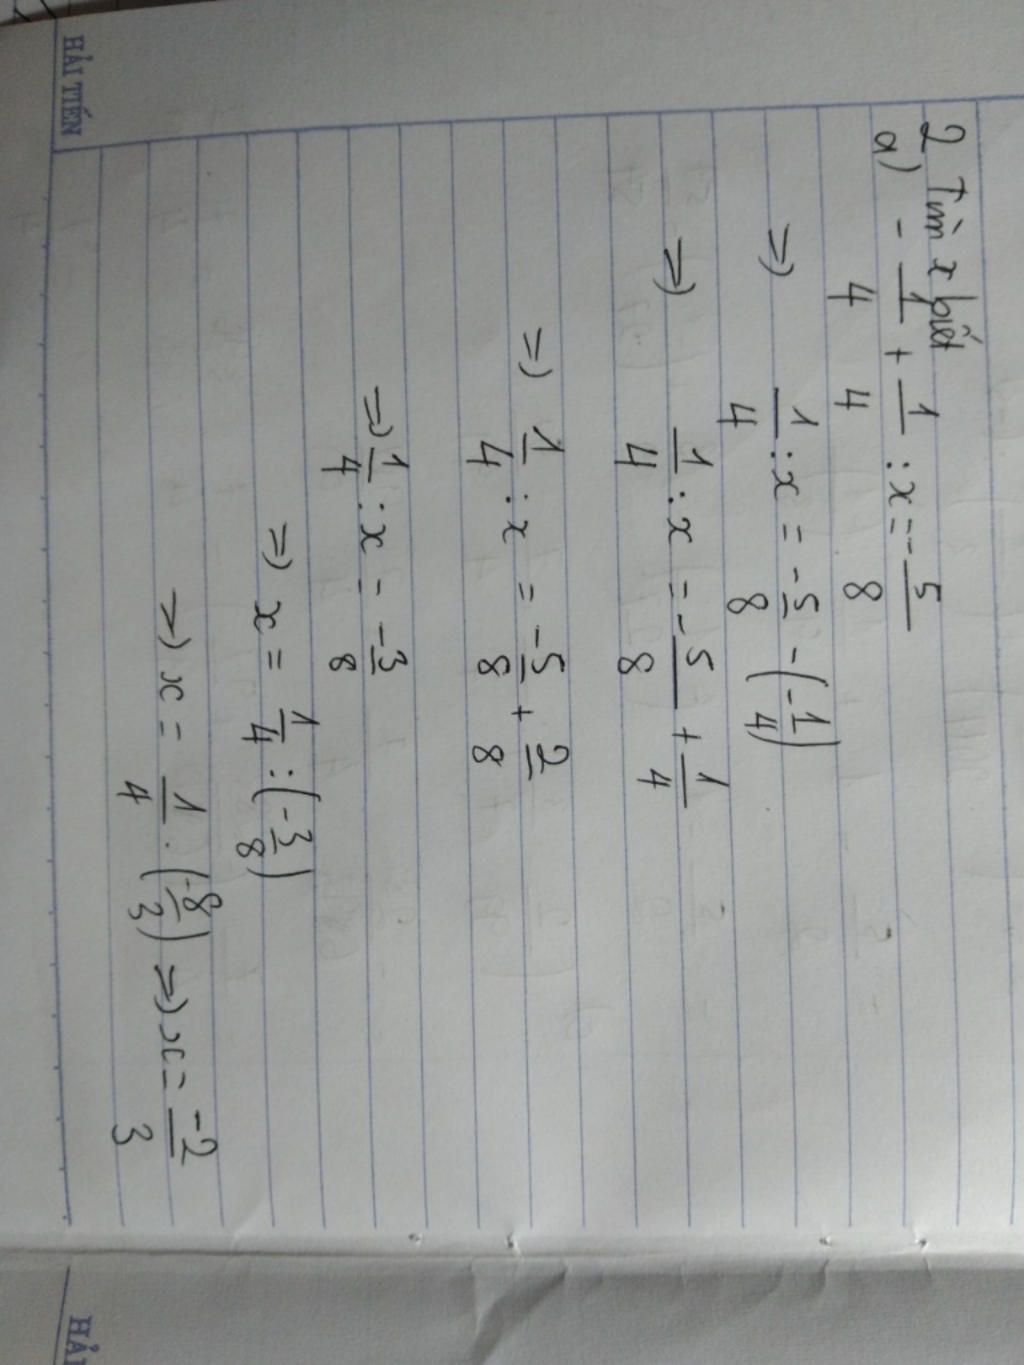 HẢI TIẾN
2 Tìm x biết
a) - 1/4 + 1/4 : x = - 5/8
=> 1/4 : x = -5/8 - (-1/4)
=> 1/4 : x = - 5/8 + 1/4
=> 1/4 : x = -5/8 + 2/8
=> 1/4 : x = -3/8
=> x = 1/4 : (-3/8)
=> x = 1/4 . (-8/3) => x = -2/3